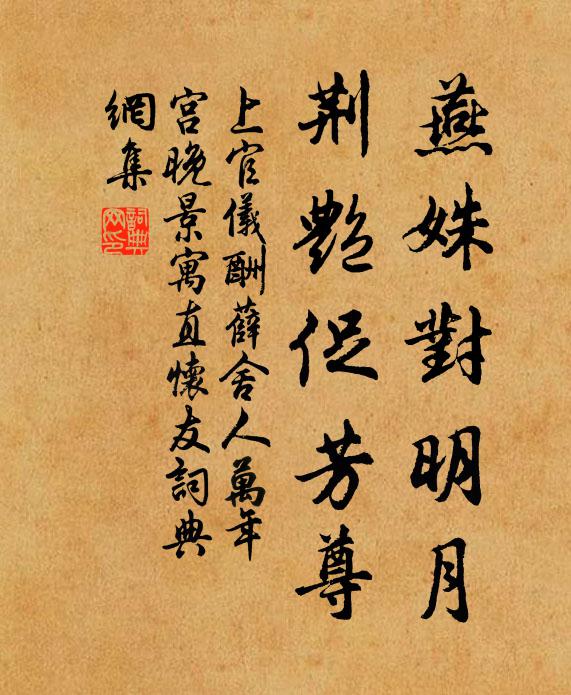 燕姝對明月
荆艷促芳尊
上官儀酬薛舍人萬年
宫晚景寓直懷友詞典
網集
詞典网印